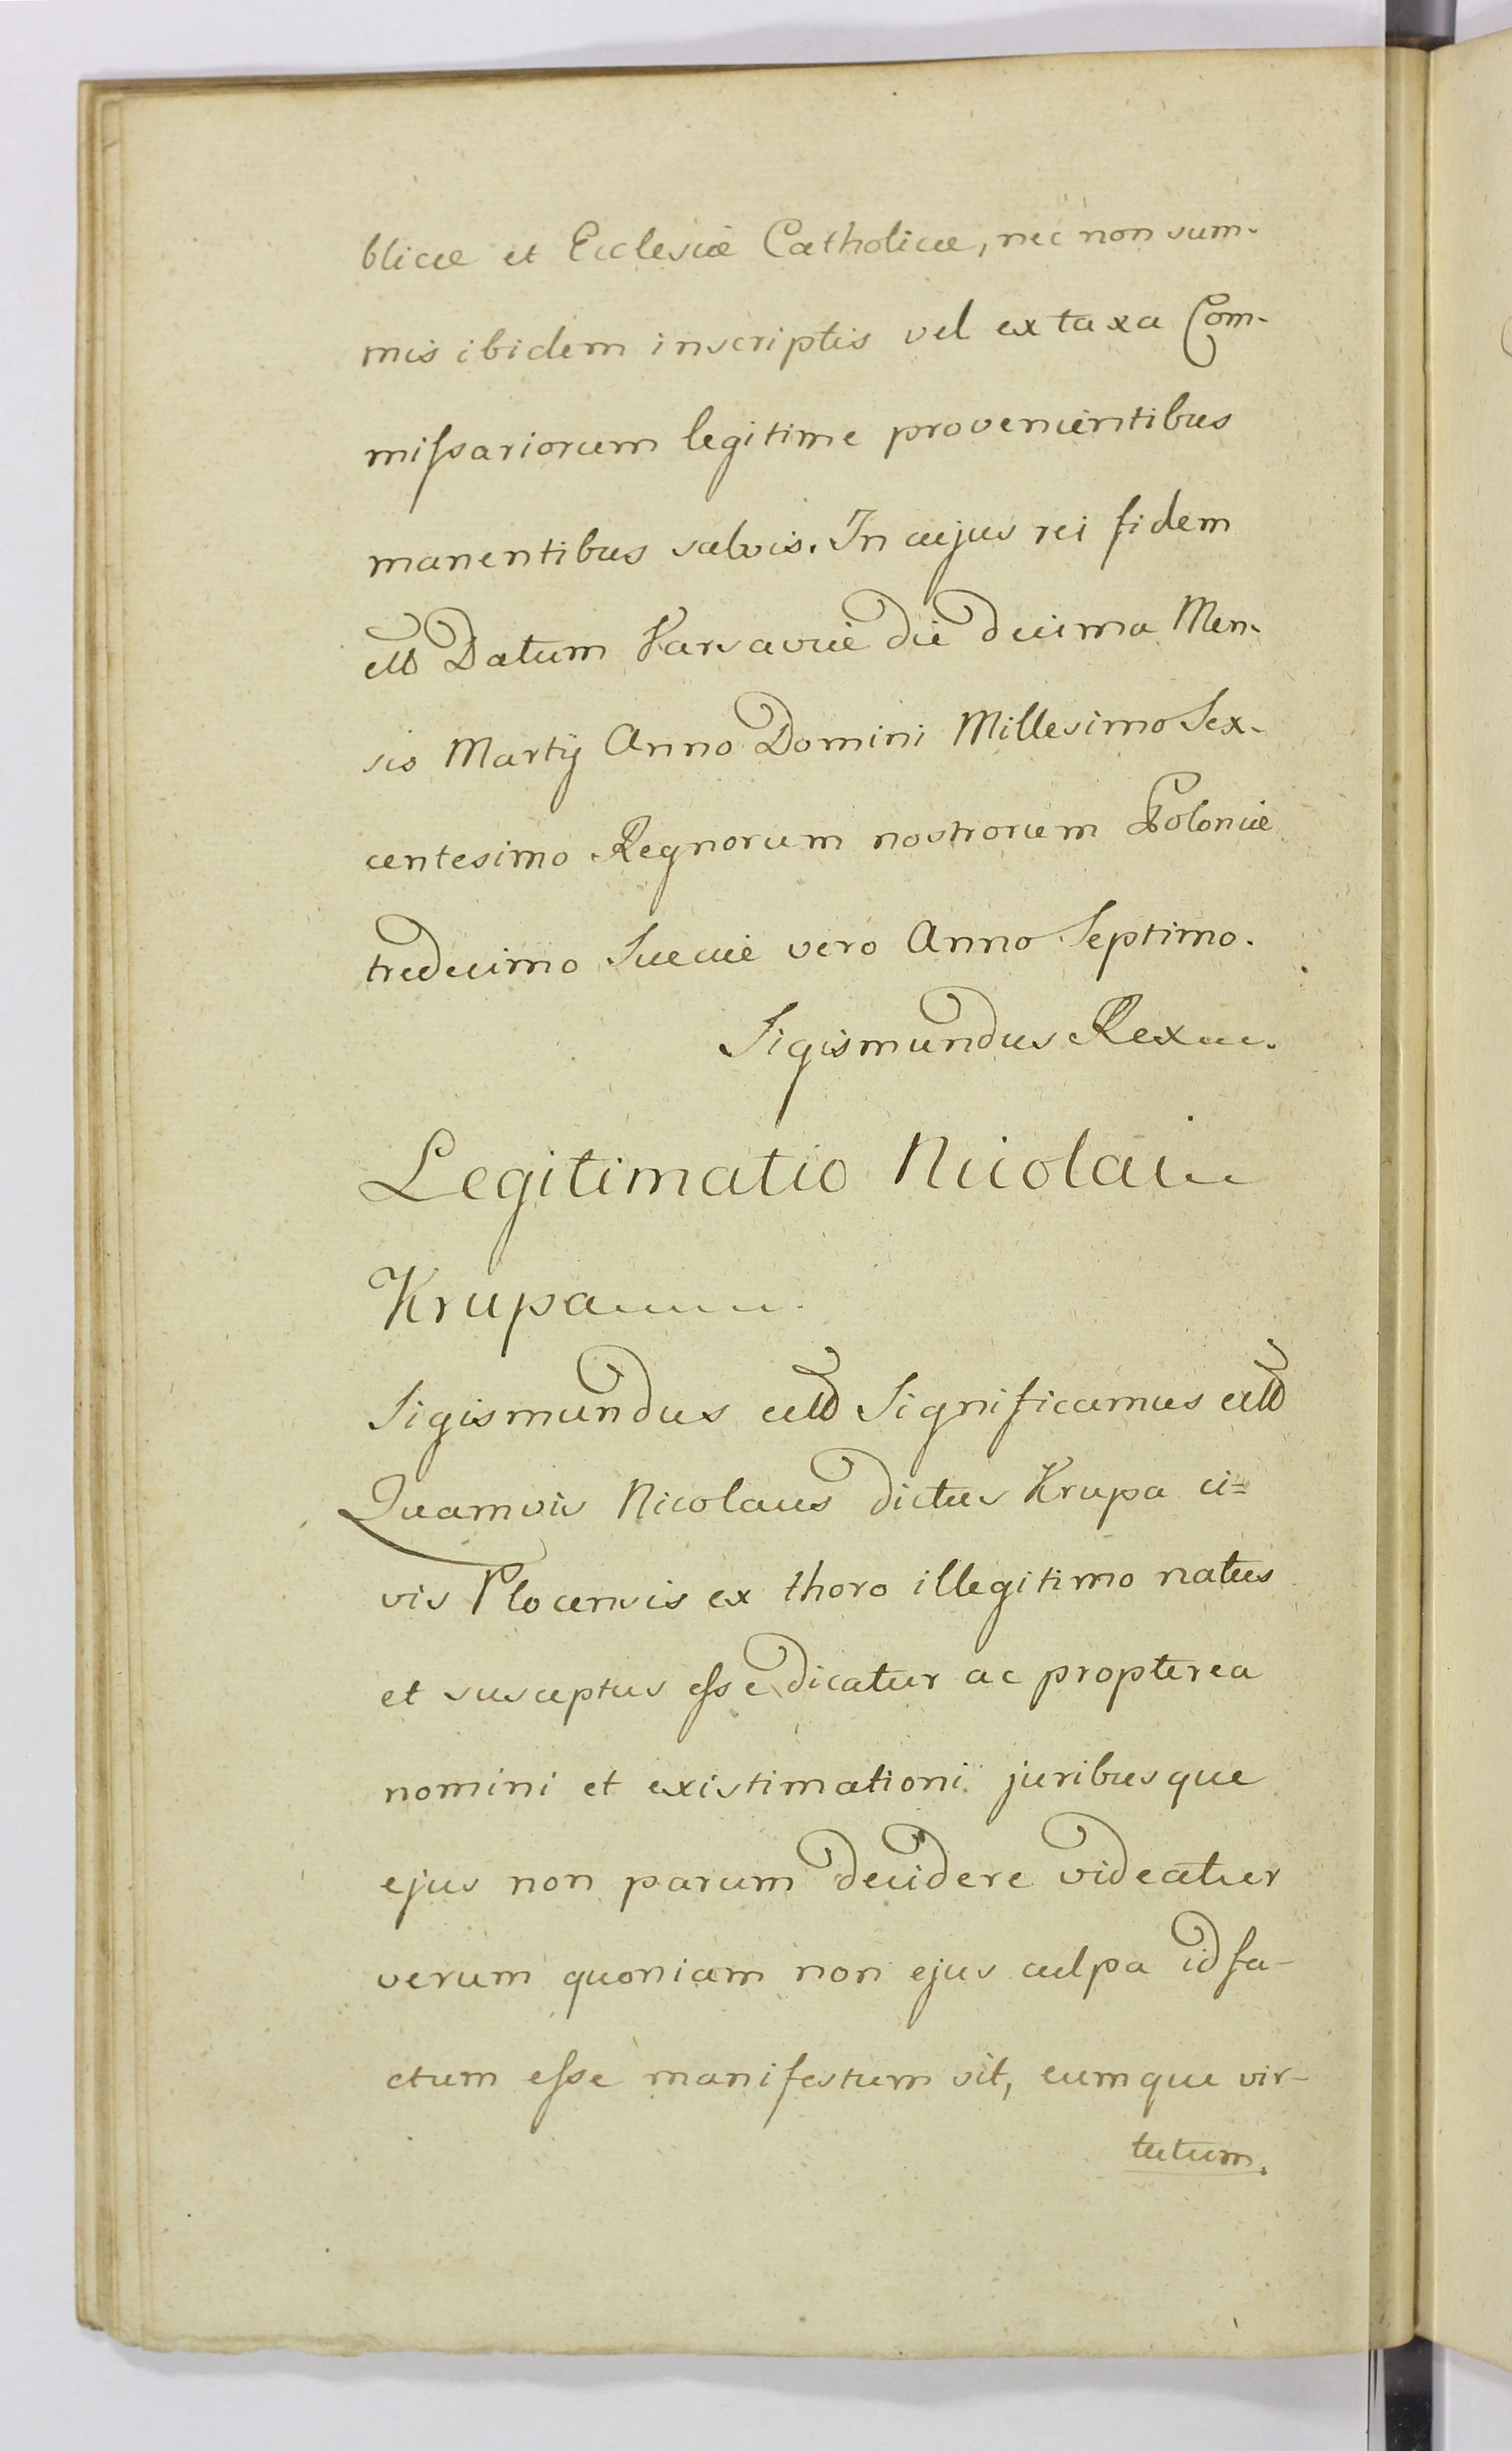 blicæ et Ecclesiæ Catholicæ, nec non sum-
mis ibidem inscriptis vel ex taxa Com-
miſsariorum legitime provenientibus
manentibus salvis. In cujus rei fidem
etb Datum Varsaviæ die decima Men-
sis Martij Anno Domini Millesimo Sex-
centesimo Regnorum nostrorum Poloniæ
tredecimo Sueciæ vero Anno Septimo.
Sigismundus Rex
Legitimatio Nicolai
Krupa
Sigismundus etb Significamus etb
Quamvis Nicolaus dictus Krupa ci=
vis Plocensis ex thoro illegitimo natus
et susceptus eſse dicatur ac propterea
nomini et existimationi juribusque
ejus non parum decidere videatur
verum quoniam non ejus culpa id fa-
ctum eſse manifestum sit, eumque vir-
tutum.